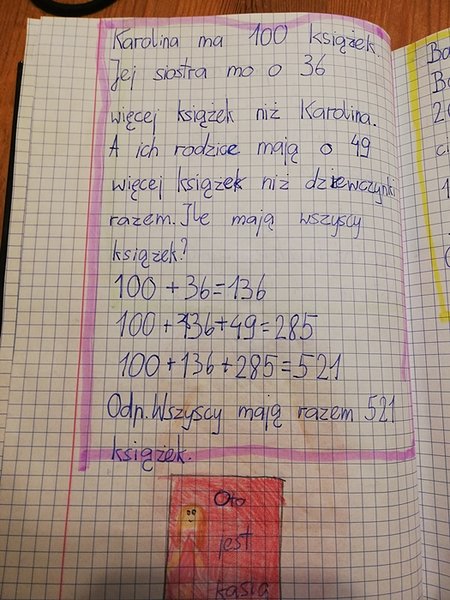 Karolina ma 100 książek.
Jej siostra ma o 36
więcej książek niż Karolina.
A ich rodzice mają o 49
więcej książek niż dziewczynki
razem. Ile mają wszyscy
książek?
100 + 36 = 136
100 + 136 + 49 = 285
100 + 136 + 285 = 521
Odp. Wszyscy mają razem 521
książek.
Oto
jest
Kasia
Ba
Ba